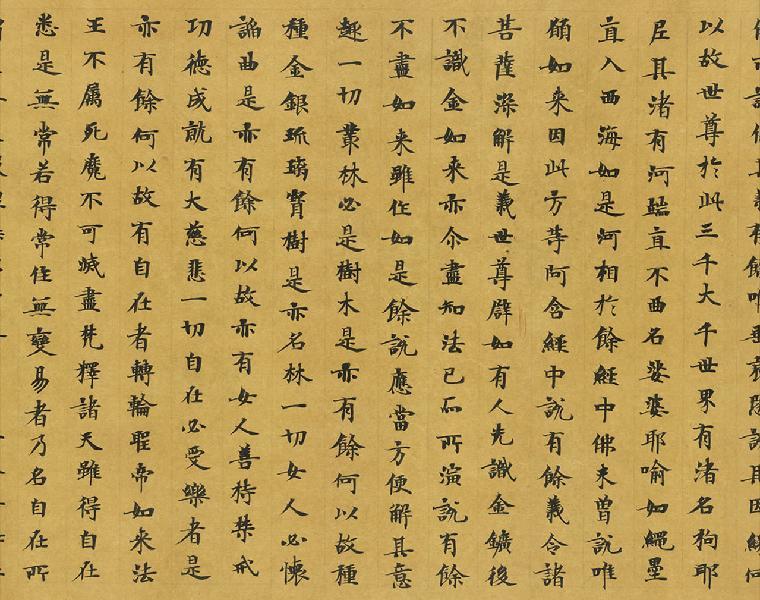 以故世尊於此三千大千世界有渚名拘耶
尼其渚有河端直不曲名娑婆耶喻如繩墨
直入西海如是河相於餘經中佛未曾說唯
願如来因此方等阿含經中說有餘義令諸
菩薩深解是義世尊譬如有人先識金鑛後
不識金如来亦尒盡知法已而所演說有餘
不盡如来雖作如是餘說應當方便解其意
趣一切叢林必是樹木是亦有餘何以故種
種金銀琉璃寶樹是亦名林一切女人必懷
諂曲是亦有餘何以故亦有女人善持禁戒
功德成就有大慈悲一切自在必受樂者是
亦有餘何以故有自在者轉輪聖帝如来法
王不屬死魔不可滅盡梵釋諸天雖得自在
悉是無常若得常住無變易者乃名自在所